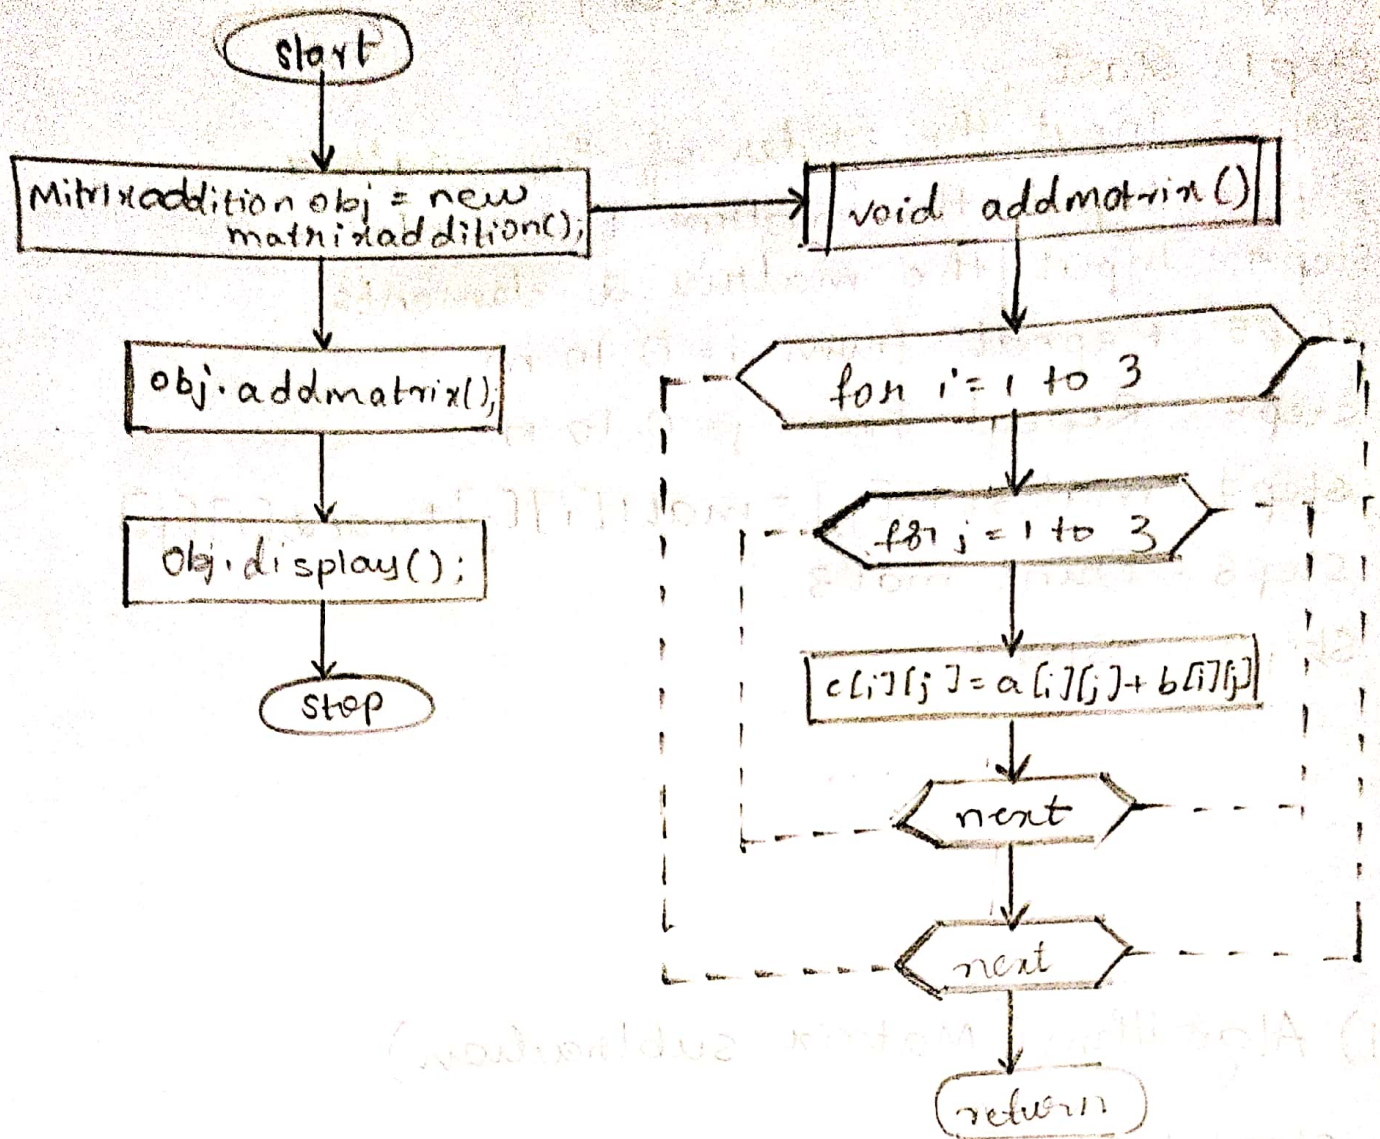 start
Mitrixaddition obj = new
matrixaddition();
obj.addmatrix();
obj.display();
stop
void addmatrix()
for i = 1 to 3
for j = 1 to 3
c[i][j] = a[i][j] + b[i][j]
next
next
return